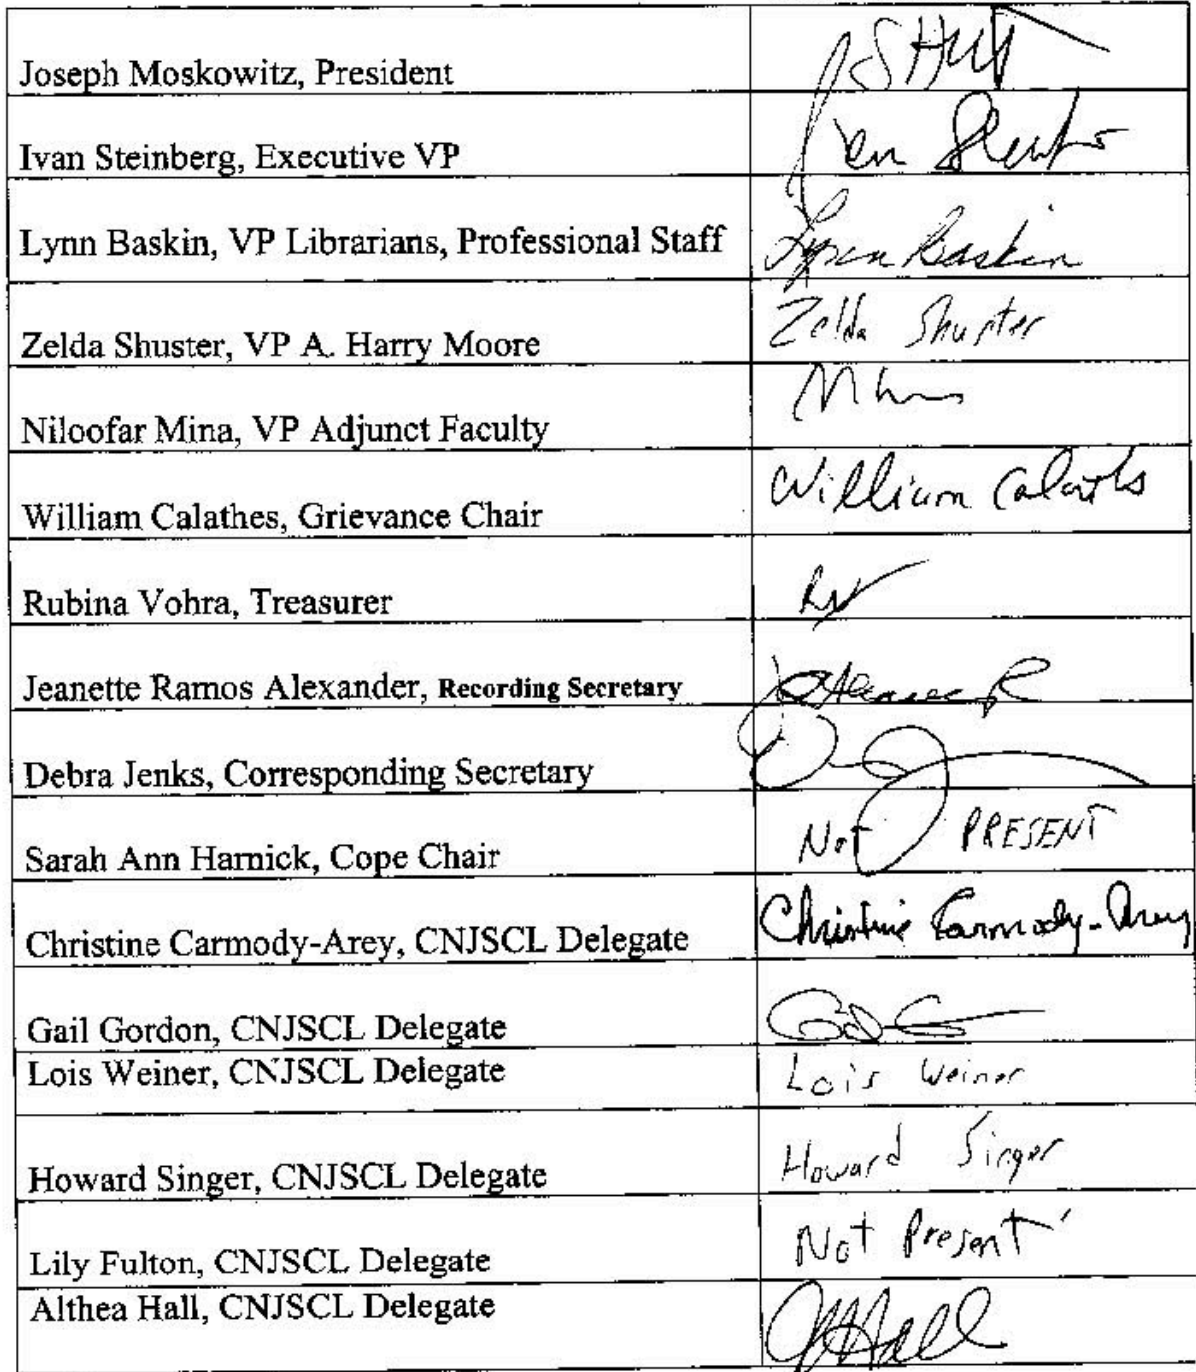 Joseph Moskowitz, President
Ivan Steinberg, Executive VP
Lynn Baskin, VP Librarians, Professional Staff Lynn Baskin
Zelda Shuster, VP A. Harry Moore Zelda Shuster
Niloofar Mina, VP Adjunct Faculty
William Calathes, Grievance Chair William Calathes
Rubina Vohra, Treasurer RV
Jeanette Ramos Alexander, Recording Secretary
Debra Jenks, Corresponding Secretary
Sarah Ann Harnick, Cope Chair Not PRESENT
Christine Carmody-Arey, CNJSCL Delegate Christine Carmody-Arey
Gail Gordon, CNJSCL Delegate
Lois Weiner, CNJSCL Delegate Lois Weiner
Howard Singer, CNJSCL Delegate Howard Singer
Lily Fulton, CNJSCL Delegate Not Present
Althea Hall, CNJSCL Delegate AHall